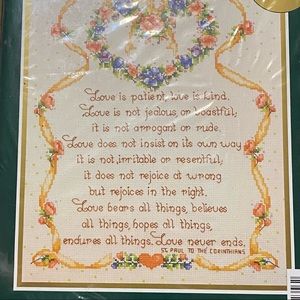 Love is patient, love is kind,
Love is not jealous, or boastful;
it is not arrogant or rude.
Love does not insist on its own way
it is not, irritable or resentful;
it does not rejoice at wrong
but rejoices in the right.
Love bears all things, believes
all things, hopes all things,
endures all things. Love never ends.
ST. PAUL TO THE CORINTHIANS